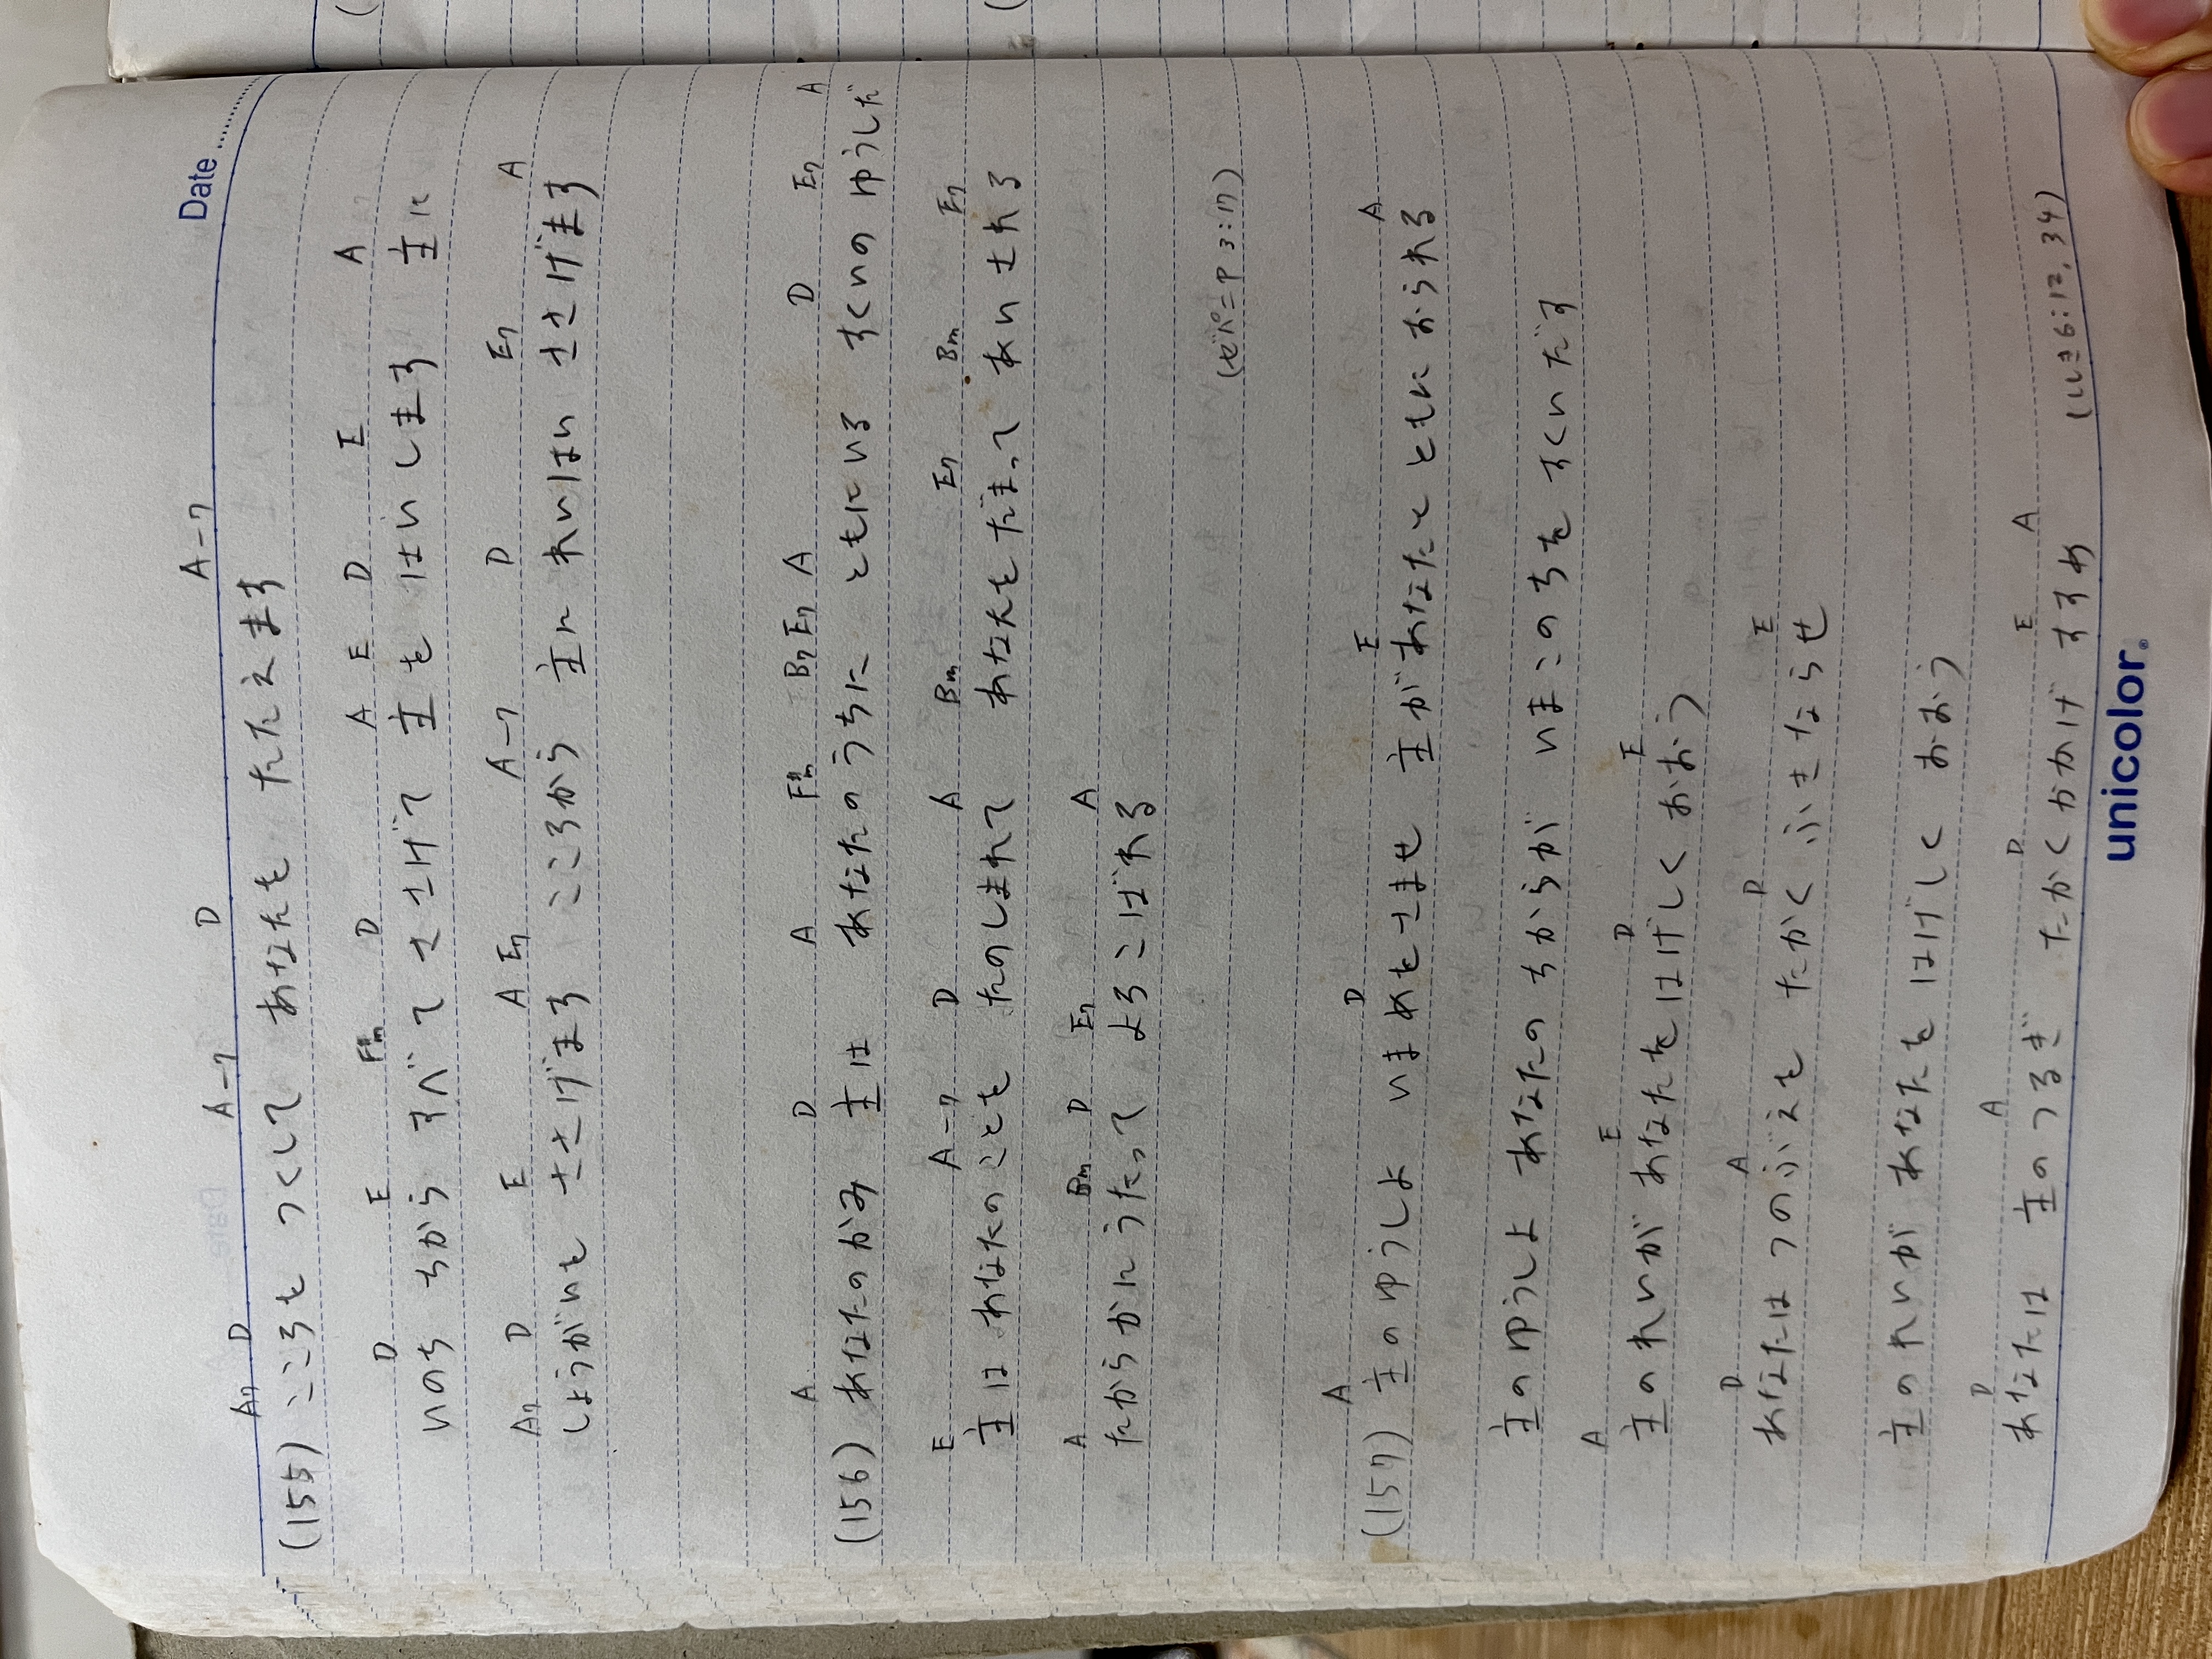 Date
A7 D A-7 D A-7
(155) こころを つくして あなたを たたえます
D E F#m D A E D E A
いのち ちから すべて ささげて 主を はいします 主に
A7 D E A E7 A-7 D E7 A
しょうがいを ささげます こころから 主に れいはい ささげます
A D A F#m B7 E7 A D E7 A
(156) あなたのかみ 主は あなたのうちに ともにいる すくいの ゆうしだ
E A-7 D A Bm E7 Bm E7
主は あなたのことを たのしまれて あなたを だまって あいされる
A Bm D E7 A
たからかにうたって よろこばれる
(ゼパニヤ 3:17)
A D E A
(157) 主のゆうしよ いまめをさませ 主があなたと ともにおられる
主のゆうしよ あなたの ちからが いまこのちを すくいだす
A E D E
主のれいが あなたをはげしく おおう
D A D E
あなたは つのぶえを たかく ふきならせ
主のれいが あなたを はげしく おおう
D A D E A
あなたは 主のつるぎ たかくかかげ すすめ
(しし6:12,34)
unicolor.